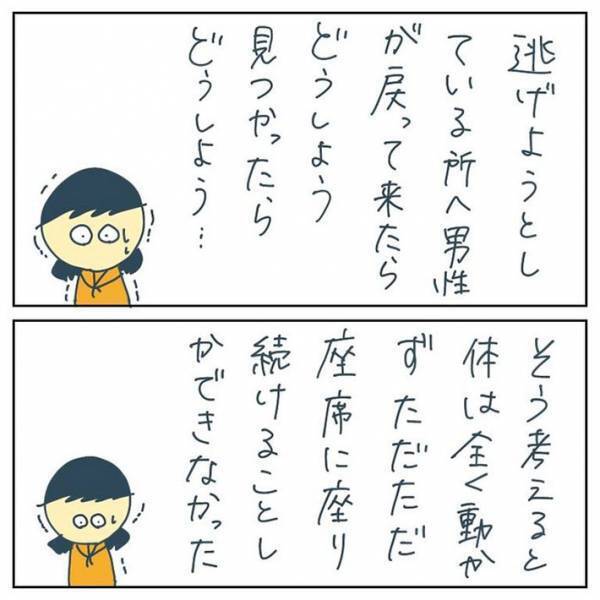 逃げようとし
ている所へ男性
が戻って来たら
どうしよう
見つかったら
どうしよう…
そう考えると
体は全く動か
ずただただ
座席に座り
続けることし
かできなかった